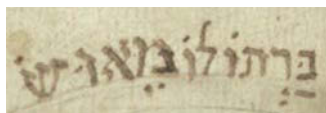 בַּרְתוֹלוֹמֵאוּשׁ